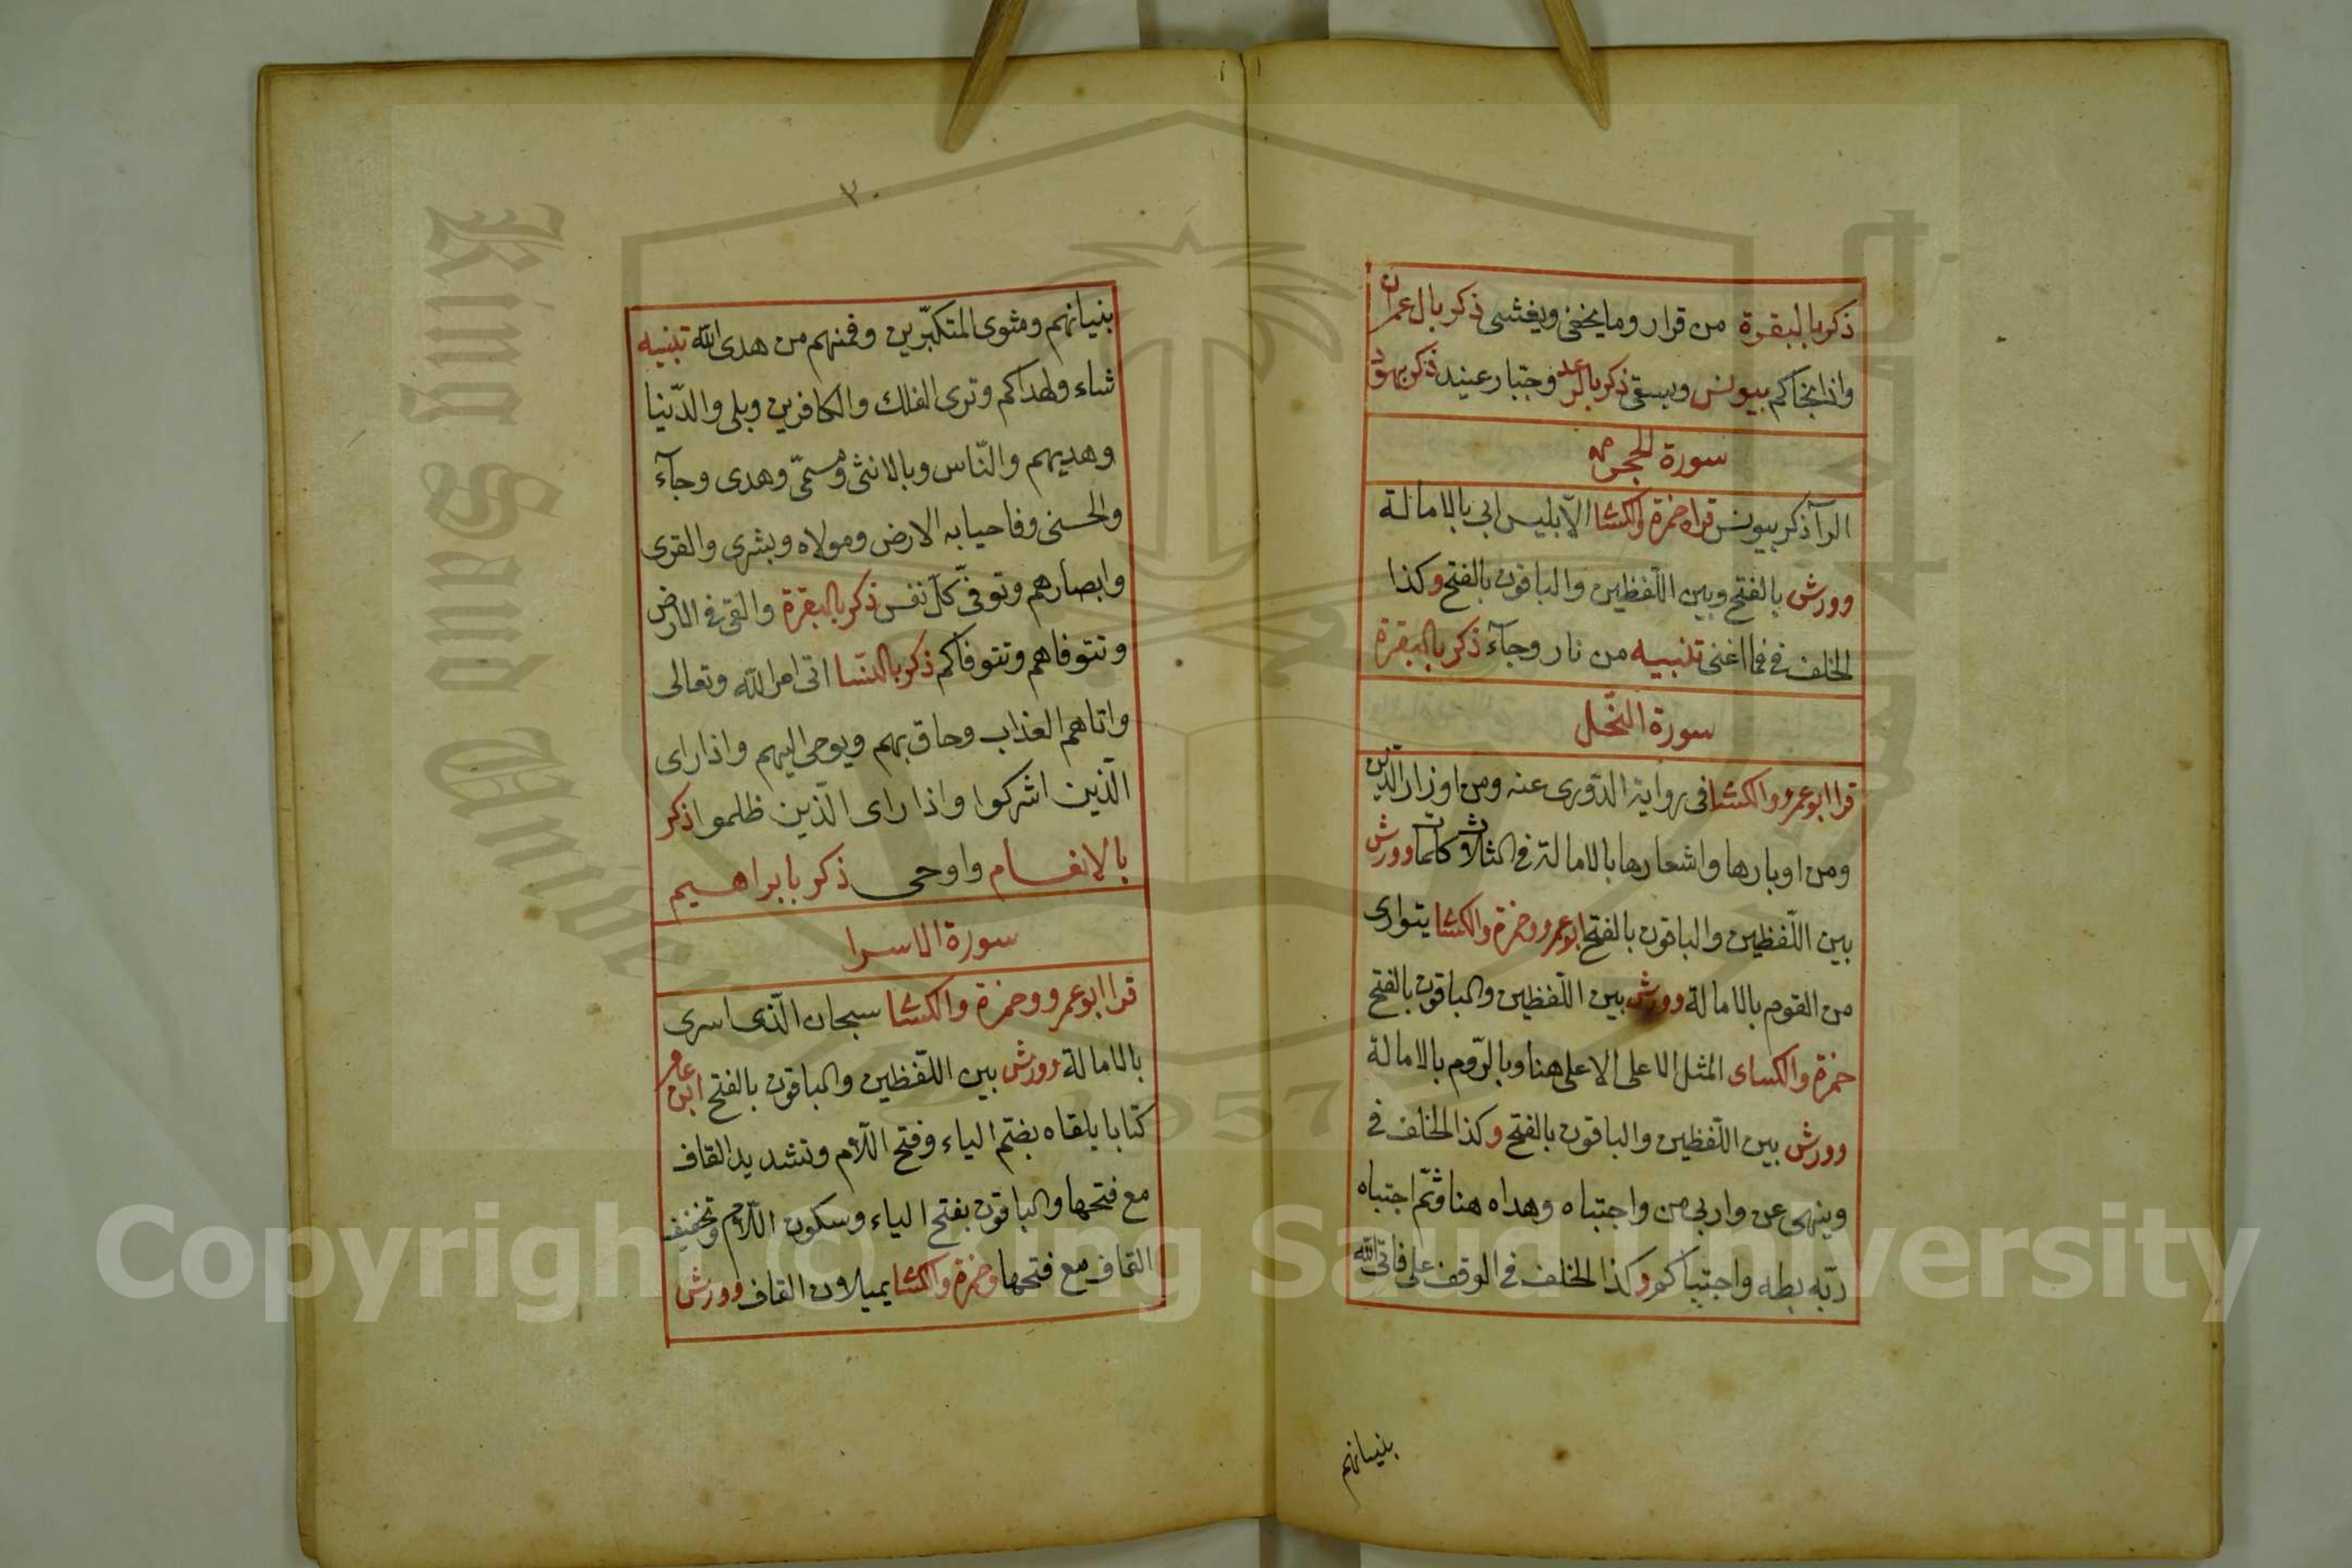 ذكر بالبقرة من قرار وما يخفى ويغشى ذكر بال عمران
واذ انجاكم بيونس ويسقى ذكر بالرعد وجبار عنيد ذكر بهود
سورة الحجر
الرآ ذكر بيونس قراء حمزة والكسا الا ابليس ابى بالامالة
وورش بالفتح وبين اللّفظين والباقون بالفتح وكذا
الخلف في فما اغنى تنبيه من نار وجآء ذكر بالبقرة
سورة النحّل
قرا ابو عمرو والكسا فى رواية الدّورى عنه ومن اوزار الّذين
ومن اوبارها واشعارها بالامالة في الثلاث كلمات وورش
بين اللّفظين والباقون بالفتح ابو عمرو وحمزة والكسا يتوارى
من القوم بالامالة وورش بين اللّفظين والباقون بالفتح
حمزة والكساى المثل الاعلى الاعلى هنا وبالرّوم بالامالة
وورش بين اللّفظين والباقون بالفتح وكذا الخلف في
وينهى عن واربى من واجتباه وهداه هنا وثمّ اجتباه
ربّه بطه واجتباكم وكذا الخلف في الوقف على فاتى الله
بنيانهم
٣٠
بنيانهم ومثوى المتكبّرين وفمنهم من هدى الله تنبيه
شاء ولهداكم وترى الفلك والكافرين وبلى والدّنيا
وهديهم والنّاس وبالانثى ومسمّى وهدى وجآء
والحسنى وفاحيا به الارض ومولاه وبشرى والقرى
وابصارهم وتوفّى كلّ نفس ذكر بالبقرة والقى في الارض
وتتوفاهم وتتوفاكم ذكر بالنّسا اتى امر الله وتعالى
واتاهم العذاب وحاق بهم ويوحى اليهم واذا راى
الّذين اشركوا واذا راى الّذين ظلموا ذكر
بالانعام واوحى ذكر بابراهيم
سورة الاسرا
قرا ابو عمرو وحمزة والكسا سبحان الّذى اسرى
بالامالة وورش بين اللّفظين والباقون بالفتح ابن عامر
كتابا يلقاه بضمّ الياء وفتح اللّام وتشديد القاف
مع فتحها والباقون بفتح الياء وسكون اللّام وتخفيف
القاف مع فتحها وحمزة والكسا يميلان القاف وورش
King Saud University
1957
Copyright © King Saud University